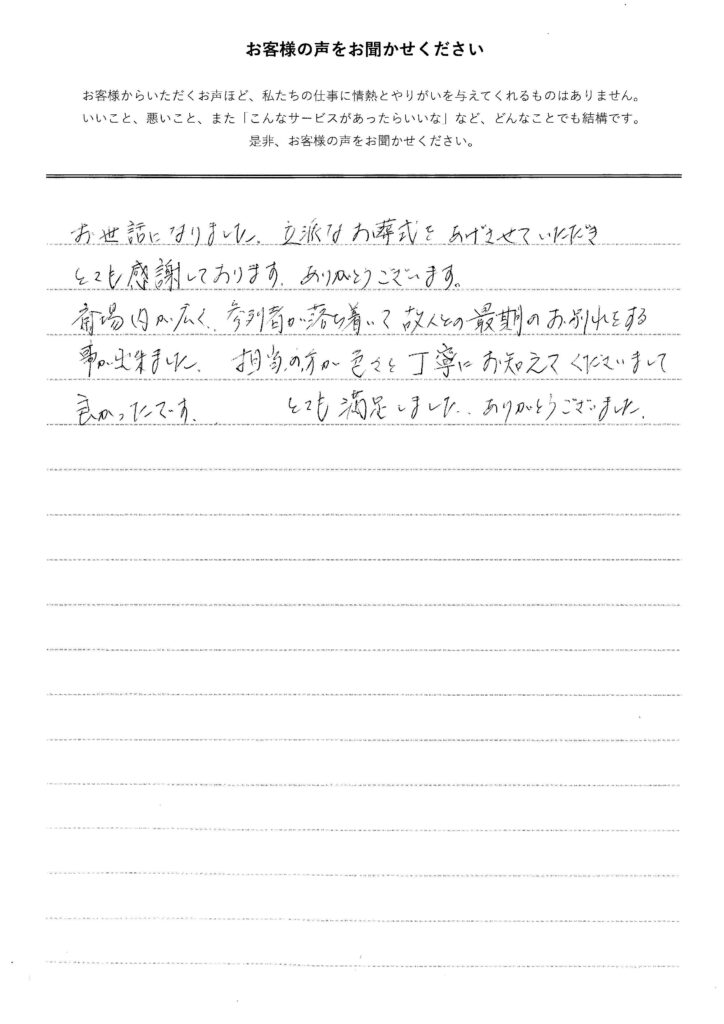 お客様の声をお聞かせください
お客様からいただくお声ほど、私たちの仕事に情熱とやりがいを与えてくれるものはありません。
いいこと、悪いこと、また「こんなサービスがあったらいいな」など、どんなことでも結構です。
是非、お客様の声をお聞かせください。
お世話になりました。立派なお葬式をあげさせていただき
とても感謝しております。ありがとうございます。
斎場内が広く、参列者が落ち着いて故人との最期のお別れをする
事が出来ました。担当の方が色々と丁寧にお知えてくださいまして
良かったです。 とても満足しました。ありがとうございました。